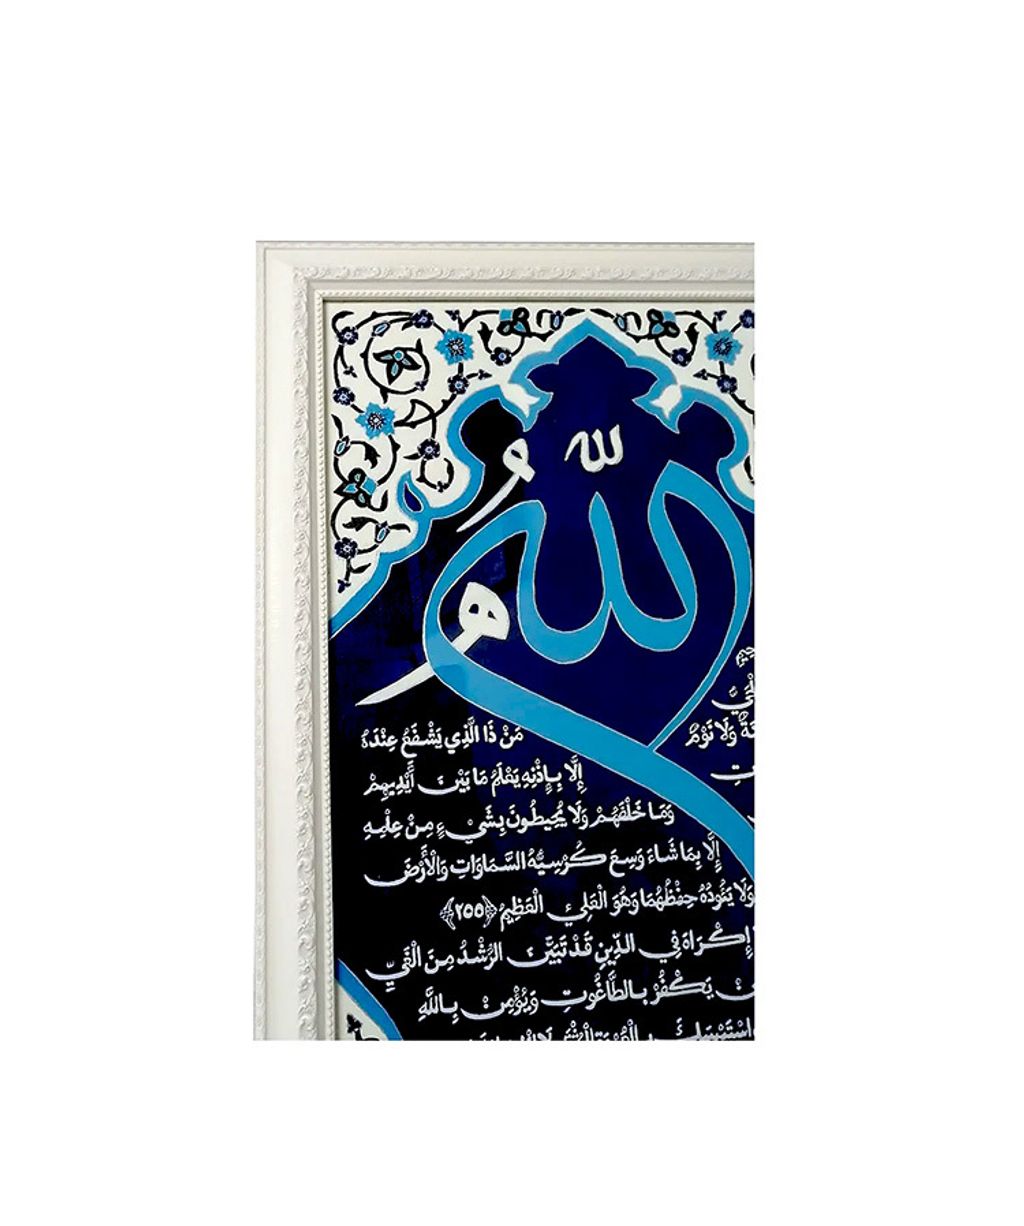 لله
هُو
وَلَا نَوْمٌ
مَنْ ذَا الَّذِي يَشْفَعُ عِنْدَهُ
إِلَّا بِإِذْنِهِ يَعْلَمُ مَا بَيْنَ أَيْدِيهِمْ
وَمَا خَلْفَهُمْ وَلَا يُحِيطُونَ بِشَيْءٍ مِنْ عِلْمِهِ
إِلَّا بِمَا شَاءَ وَسِعَ كُرْسِيُّهُ السَّمَاوَاتِ وَالْأَرْضَ
وَلَا يَئُودُهُ حِفْظُهُمَا وَهُوَ الْعَلِيُ الْعَظِيمُ ﴿٢٥٥﴾
إِكْرَاهَ فِي الدِّينِ قَدْ تَبَيَّنَ الرُّشْدُ مِنَ الْغَيِّ
يَكْفُرْ بِالطَّاغُوتِ وَيُؤْمِنْ بِاللَّهِ